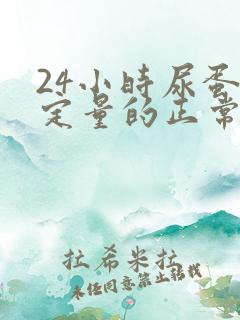 24小时尿蛋
定量的正常
拉希米拉
未经同意禁止转载